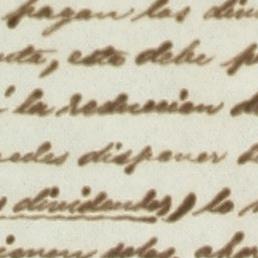 pagan los divi
nta, esto debe p
i la reduccion d
edes disponer d
s dividendos, lo
sienen ahor